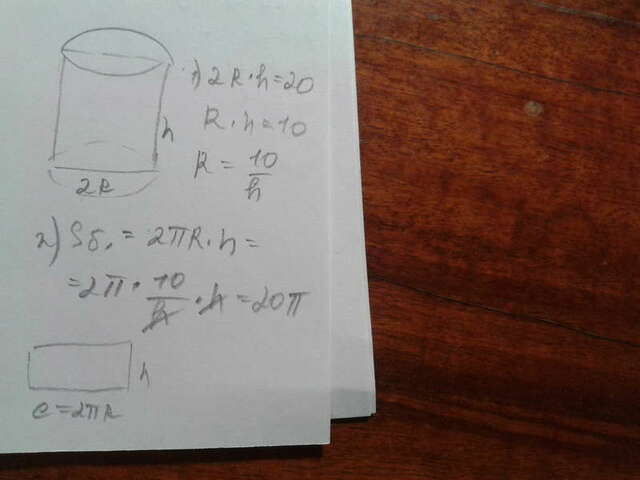 1) 2R·h=20
R·h=10
R = 10/h
h
2R
2) Sб. = 2πR·h=
=2π·10/h·h=20π
h
C=2πR